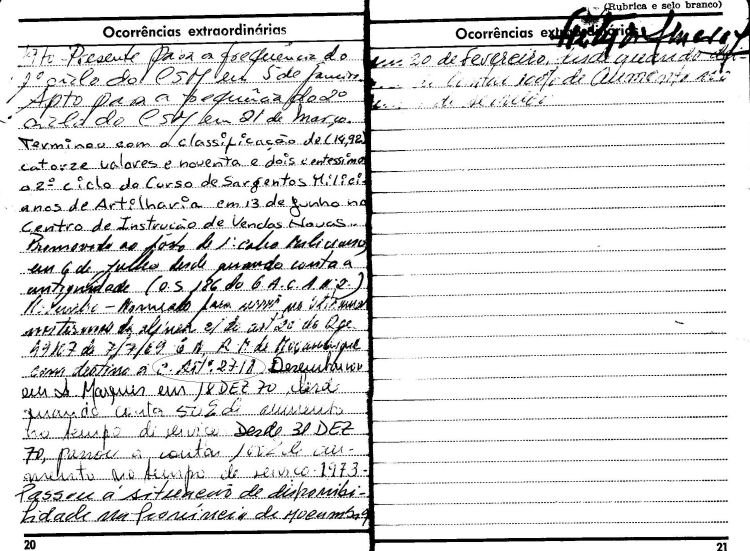 Ocorrências extraordinárias
Presente para a frequência do
2º ciclo do CSM em 5 de Janeiro
Apto para a frequência do 2º
ciclo do CSM em 21 de Março.
Terminou com a classificação de (14,92)
catorze valores e noventa e dois centessimos
o 2º ciclo do Curso de Sargentos Milici-
anos de Artilharia em 13 de Junho no
Centro de Instrução de Vendas Novas.
Promovido ao posto de 1º cabo Miliciano,
em 6 de Julho desde quando conta a
antiguidade (O.S 126 do G.A.C.A Nº 2)
Nomeado para servir no Ultramar
nos termos da alínea c) do artº 20 do
49107 de 7/7/69 R M de Moçambique
com destino a C. Artª 2718 Desembarcou
em L. Marques em 18 DEZ 70 desde
quando conta 50% de aumento
no tempo de serviço Desde 31 DEZ
70, passou a contar 100% de au-
mento no tempo de serviço 1973-
Passou à situação de disponibi-
lidade na Província de Moçambiq
20
(Rubrica e selo branco)
Ocorrências extraordinárias
em 20 de Fevereiro, quando
contar 100% de aumento no
de serviço
21